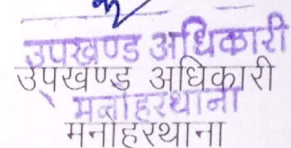 उपखण्ड अधिकारी
उपखण्ड अधिकारी
मनोहरथाना
मनोहरथाना